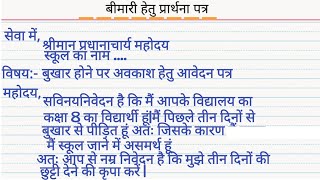 बीमारी हेतु प्रार्थना पत्र
सेवा में,
श्रीमान प्रधानाचार्य महोदय
स्कूल का नाम ....
विषय:- बुखार होने पर अवकाश हेतु आवेदन पत्र
महोदय,
सविनयनिवेदन है कि मैं आपके विद्यालय का
कक्षा 8 का विद्यार्थी हूं।मैं पिछले तीन दिनों से
बुखार से पीड़ित हूं अतः जिसके कारण
मैं स्कूल जाने में असमर्थ हूं
अतः आप से नम्र निवेदन है कि मुझे तीन दिनों की
छुट्टी देने की कृपा करें|